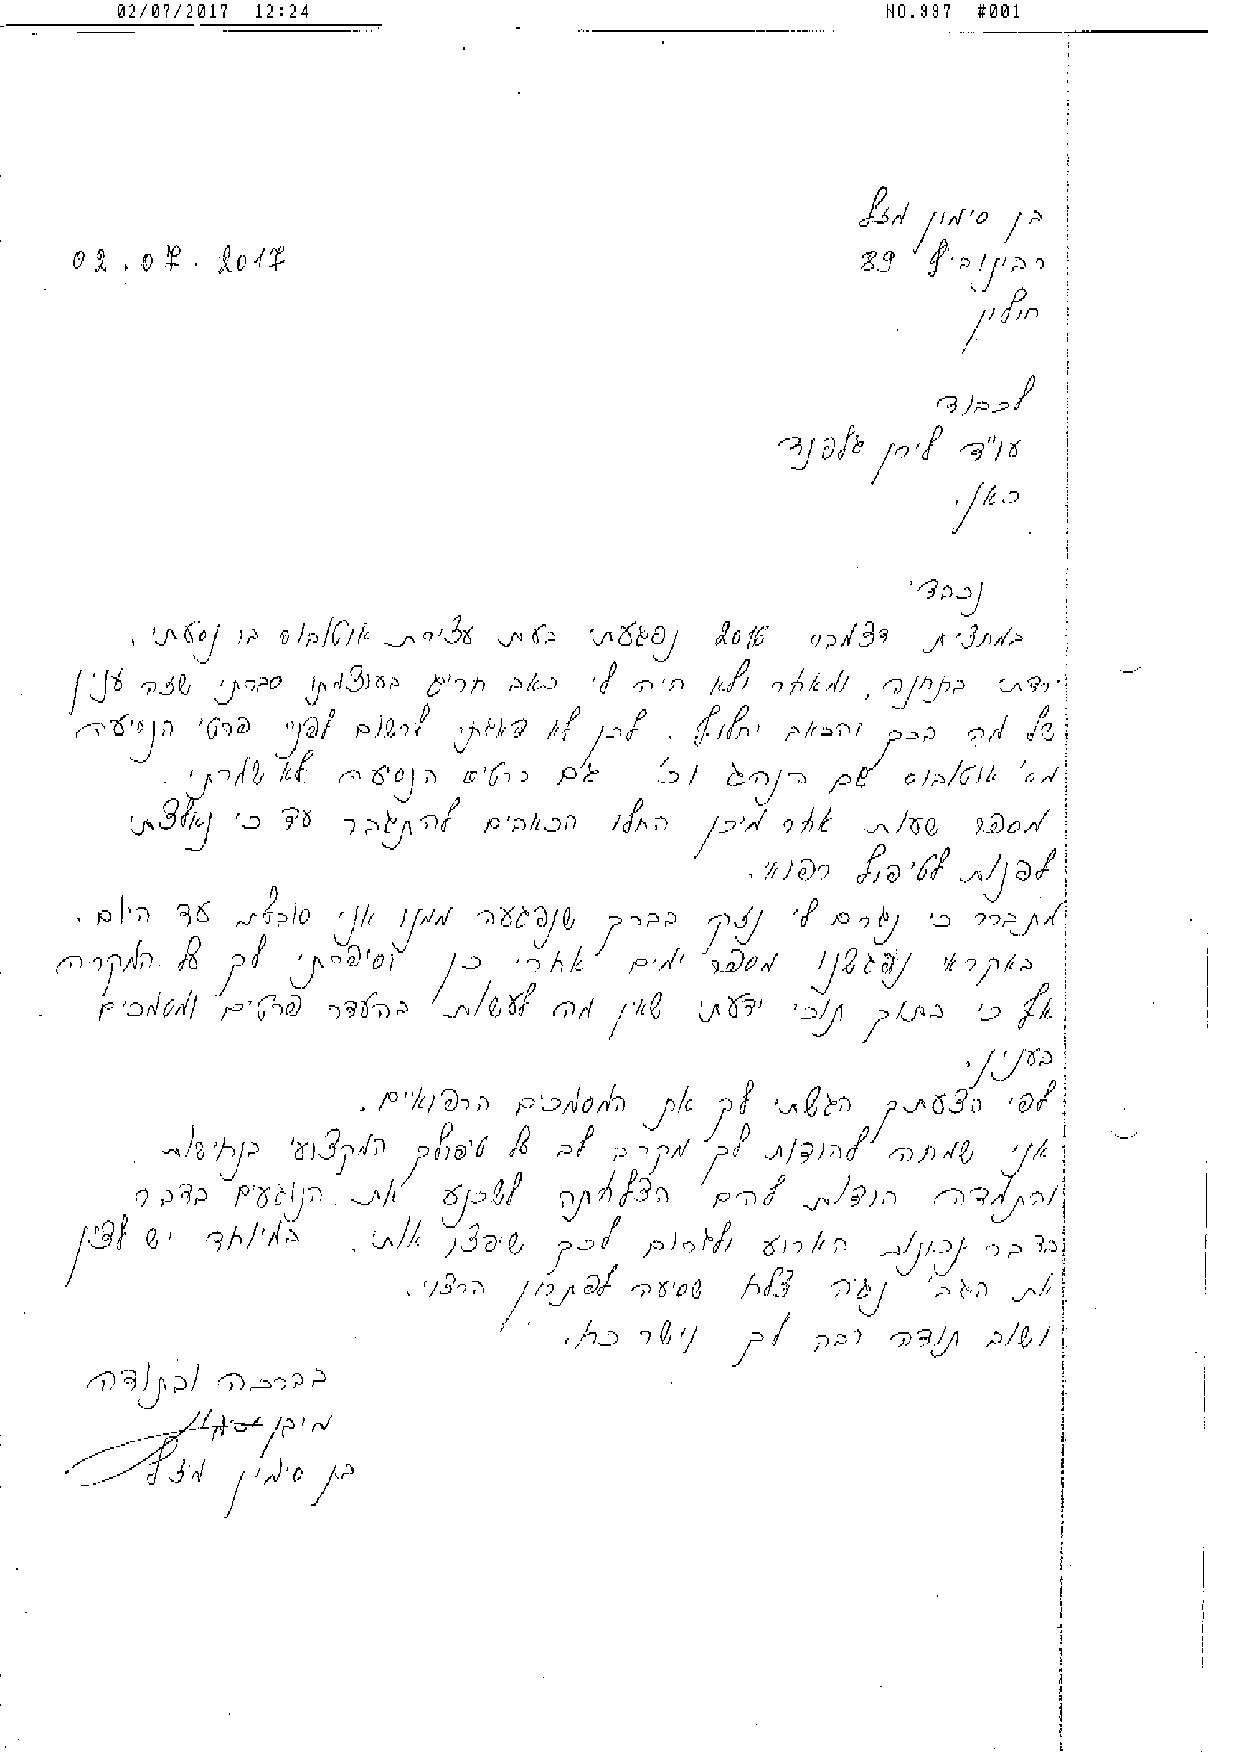 02/07/2017 12:24 NO.997 #001
בן סימון מזל
02.07.2017
רבינוביץ 89
חולון
לכבוד
עו"ד לירן גלפנד
כאן.
נכבדי
במחצית דצמבר 2016 נפגעתי בעת עצירת אוטובוס בו נסעתי.
ירדתי בתחנה, ומאחר ולא היה לי כאב חריג בעוצמתו סברתי שזה ענין
של מה בכך והכאב יחלוף. לכן לא דאגתי לרשום לפני פרטי הנסיעה
מס' אוטובוס שם הנהג וכ' גם כרטיס הנסיעה לא שמרתי.
מספר שעות אחר מיכן החלו הכאבים להתגבר עד כי נאלצתי
לפנות לטיפול רפואי.
מתברר כי נגרם לי נזק בברך שנפגעה ממנו אני סובלת עד היום.
באקראי נפגשנו מספר ימים אחרי כן וסיפרתי לך על המקרה
אף כי בתוך תוכי ידעתי שאין מה לעשות בהעדר פרטים ומסמכים
בענין.
לפי הצעתך הגשתי לך את המסמכים הרפואים.
אני שמחה להודות לך מקרב לב על טיפולך המקצועי בנחישות
והתמדה הודות להם הצלחתה לשכנע את הנוגעים בדבר
בדבר נכונות הארוע ולגרום לכך שיפצו אותי. במיוחד יש לציין
את הגב' נגיה צלח שסיעה לפתרון הרצוי.
ושוב תודה רבה לך ויישר כח.
בברכה ובתודה
בן סימון מזל